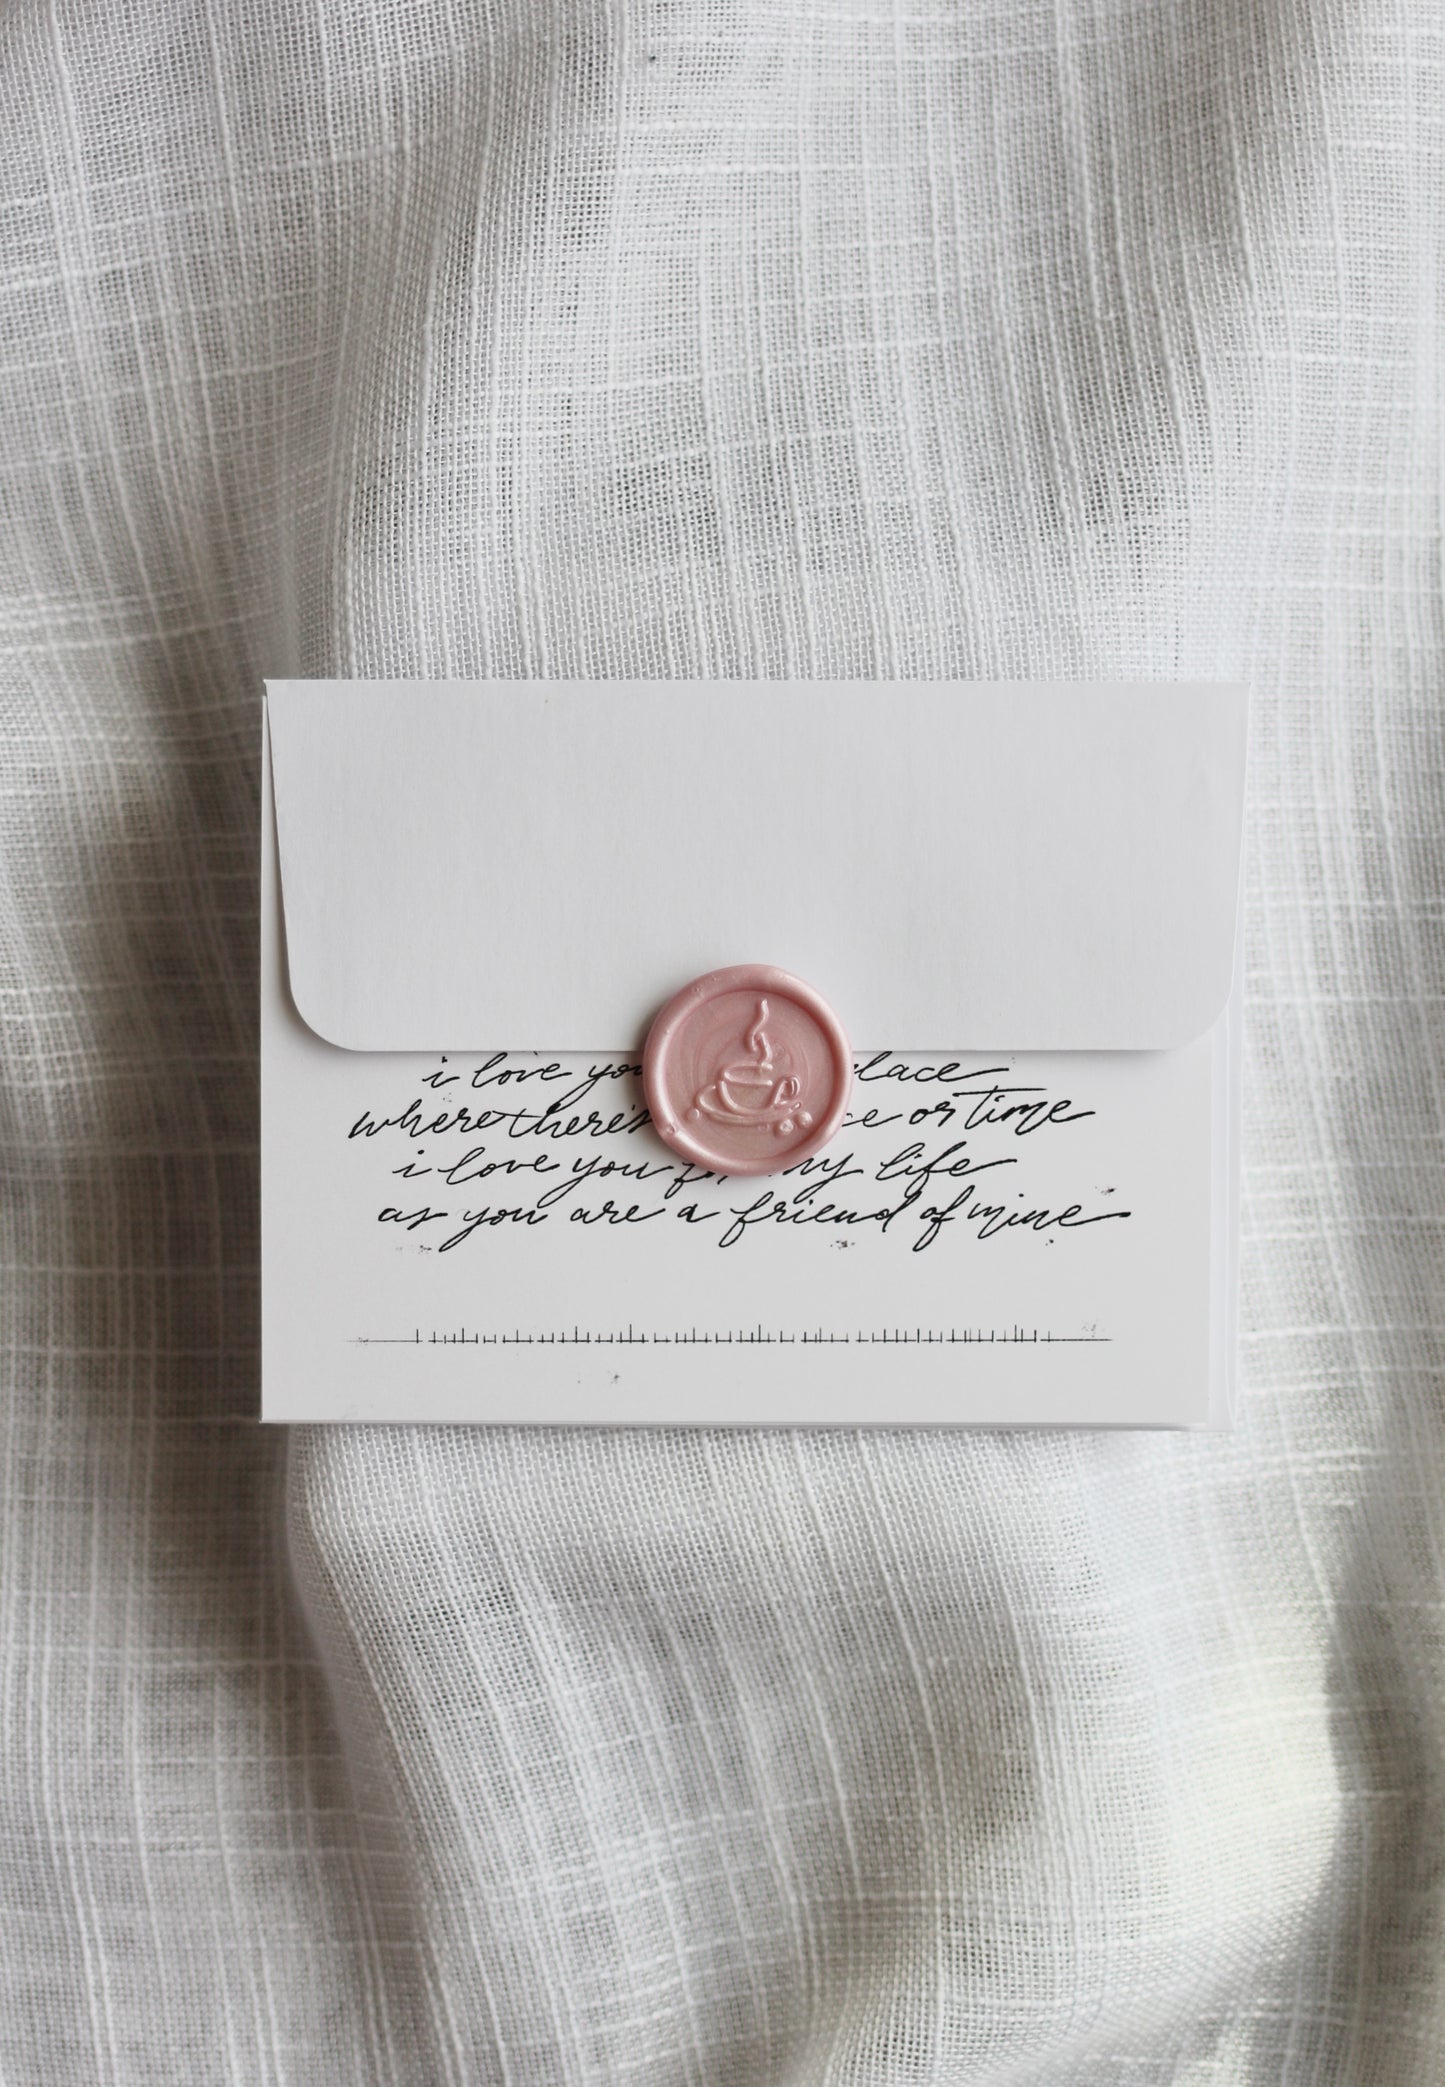 i love you lace
where there's or time
i love you my life
as you are a friend of mine